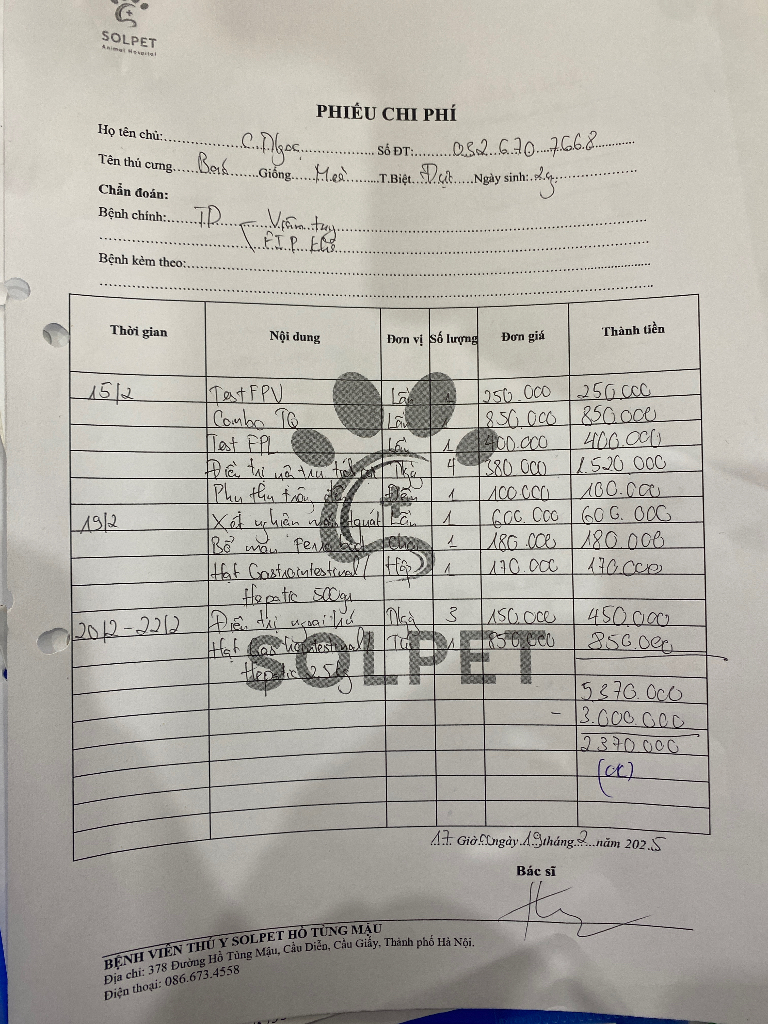 SOLPET
Animal Hospital
PHIẾU CHI PHÍ
Họ tên chủ: C. Ngọc Số ĐT: 032.670.7668
Tên thú cưng Giống Mèo T.Biệt Đực Ngày sinh: 2y
Chẩn đoán:
Bệnh chính: TD Viêm tụy
F.I.P khô
Bệnh kèm theo:
Thời gian Nội dung Đơn vị Số lượng Đơn giá Thành tiền
15/2 Test FPV Lần 1 250.000 250.000
Combo TQ Lần 850.000 850.000
Test FPL Lần 1 400.000 400.000
Điều trị nội trú 4 380 000 1.520 000
Phụ thu trông đêm Đêm 1 100.000 100.000
19/2 Xét nghiệm Lần 1 600.000 600.000
1 180.000 180.000
Hạt Gastrointestinal/ Hộp 1 170.000 170.000
Hepatic 500gr
20/2 - 22/2 Điều trị ngoại trú Ngà 3 150.000 450.000
Hạt Gastrointestinal/ 1 850.000 850.000
Hepatic
SOLPET
5.370.000
- 3.000.000
2370 000
(ck)
17 Giờ 00 ngày 19 tháng 2 năm 2025
Bác sĩ
BỆNH VIỆN THÚ Y SOLPET HỒ TÙNG MẬU
Địa chỉ: 378 Đường Hồ Tùng Mậu, Cầu Diễn, Cầu Giấy, Thành phố Hà Nội.
Điện thoại: 086.673.4558